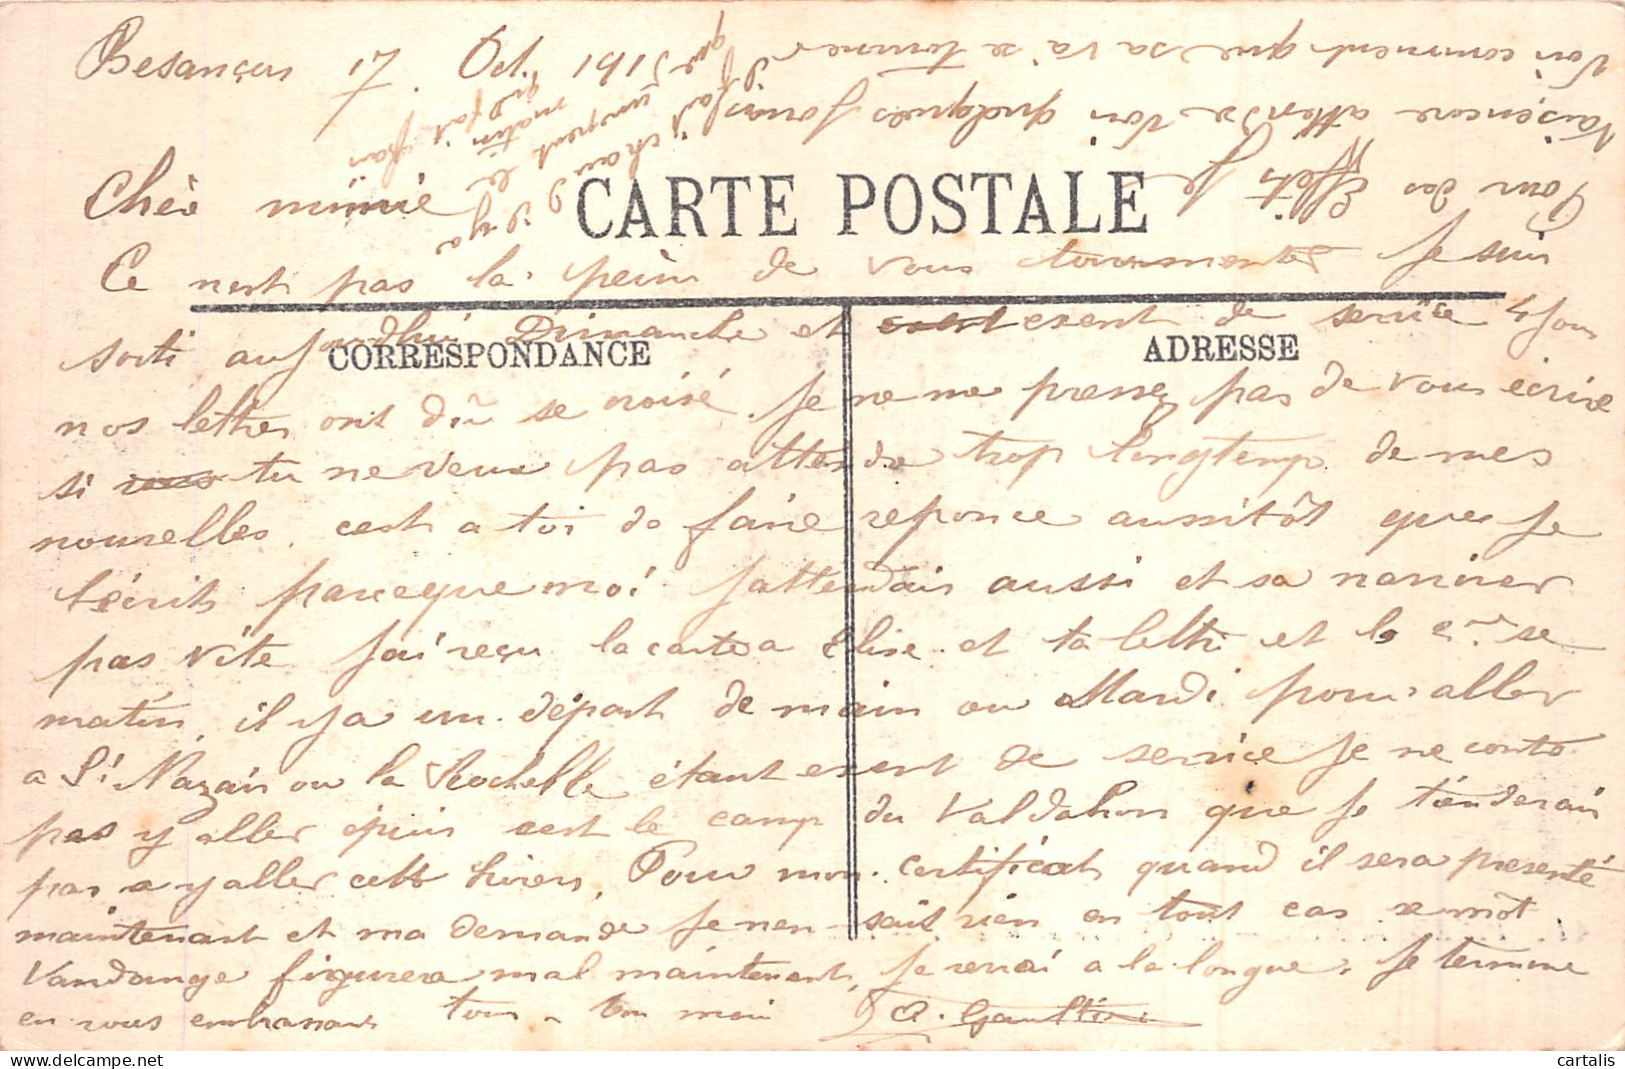 Besançon 17 Oct. 1915
Chèr mimie
CARTE POSTALE
Ce nest pas la peine de vous tourmenter Je suis
sorti aujourdhui Dimanche et exent de service 4 jour
CORRESPONDANCE
ADRESSE
nos lettres ont dû se croisé. Je ne me presse pas de vous ecrire
si tu ne veux pas attendre trop longtemp de mes
nouvelles. cest a toi de faire reponce aussitôt que Je
t'écrit parceque moi J'attendais aussi et sa narriver
pas vite J'ai reçu la carte a Elise et ta lettre et le se
matin, il y a un départ demain ou Mardi pour aller
a St Nazair ou la Rochelle étant exent de service Je ne conte
pas y aller cest le camp du Valdahon que Je tienderais
pas a y aller cette hivers. Pour mon certificat quand il sera presenté
maintenant et ma demande Je nen sait rien en tout cas se môt
Vandange figurera mal maintenant, Je verrai a la longue. Je termine
en vous embrassant tous ton mari A. Gaultier
Pour des Effets Je
Vais encore attendre voir quelques jours
Voir comment que sa va se tourner
il y a
qui fait
matin
un peut